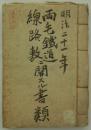 明治二十一年
両毛鐵道
線路敷ニ関スル書類